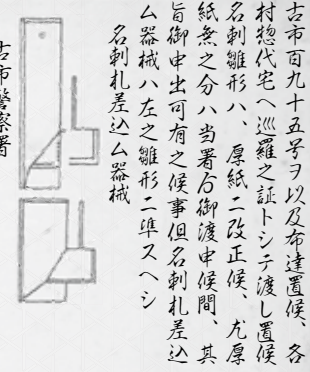 古市百九十五号ヲ以及布達置候、各
村惣代宅へ巡羅之証トシテ渡し置候
名刺雛形ハ、厚紙ニ改正候、尤厚
紙無之分ハ当署ゟ御渡申候間、其
旨御申出可有之候事但名刺札差込
ム器械ハ左之雛形ニ準スヘシ
名刺札差込ム器械
古市警察署